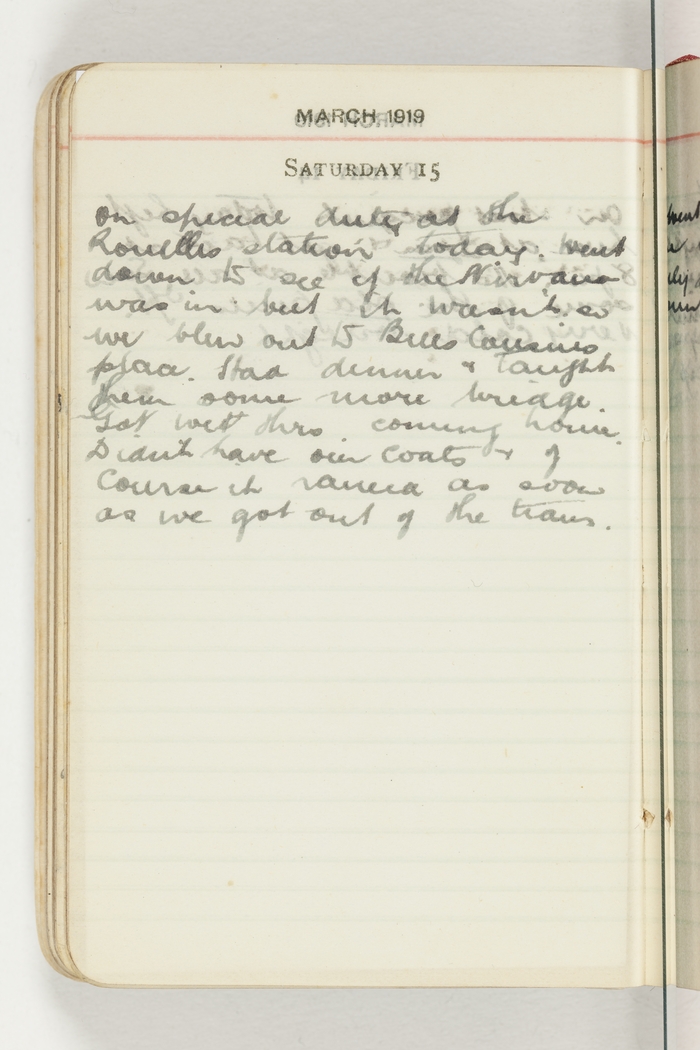 MARCH 1919
SATURDAY 15
on special duty at the
Rouelles station today. Went
down to see if the Nirvana
was in but it wasn't. so
we blew out to Bills Cousins
place. Had dinner & taught
them some more bridge.
Got wet thro coming home.
Didn't have our coats & of
Course it rained as soon
as we got out of the tram.